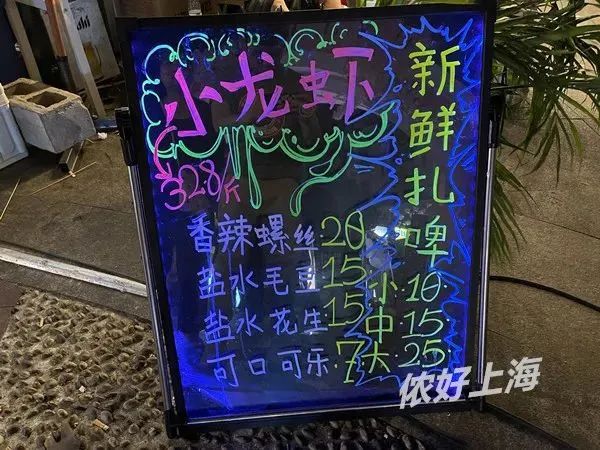 小龙虾
328/斤
香辣螺丝:20
盐水毛豆:15
盐水花生:15
可口可乐:7
新鲜扎啤
小:10
中:15
大:25
侬好上海